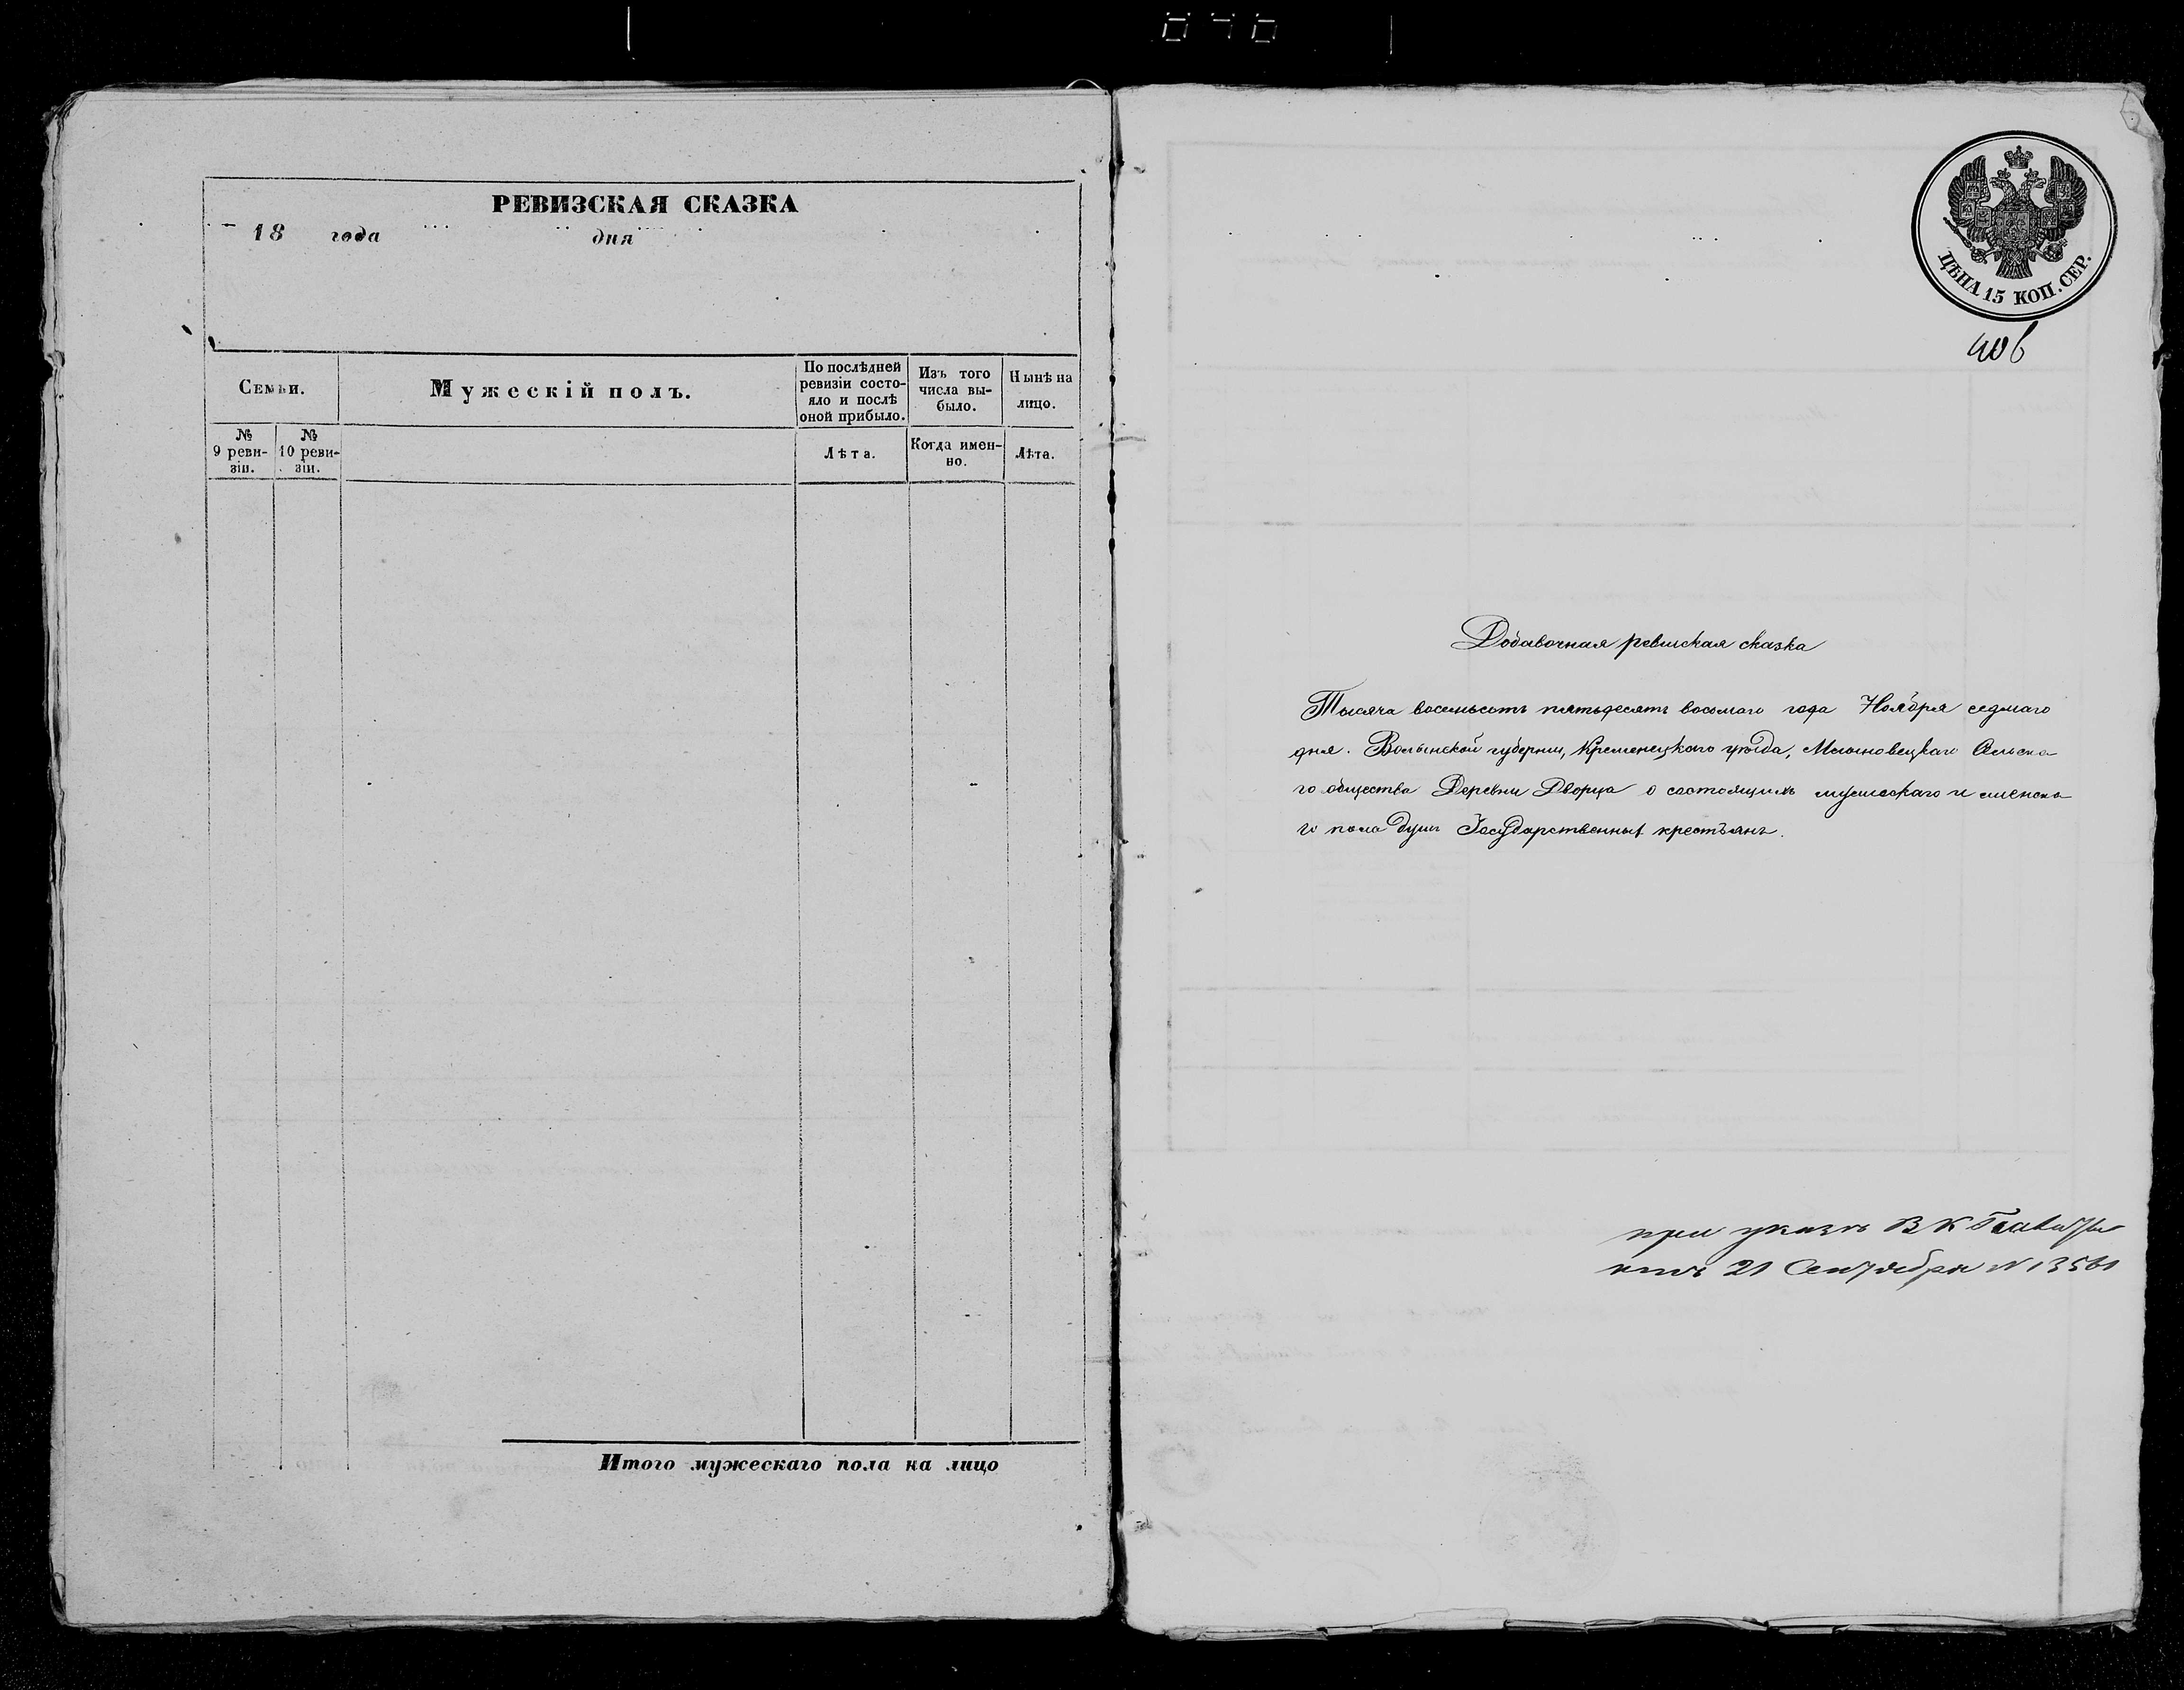 РЕВИЗСКАЯ СКАЗКА
18 года дня
Семьи.
Мужескій полъ.
По послѣдней ревизіи состо-
яло и послѣ
оной прибыло.
Изъ того
числа вы-
было.
Нынѣ на
лицо.
№
9 реви-
зіи.
№
10 реви-
зіи.
Лѣта.
Когда имен-
но.
Лѣта.
Итого мужескаго пола на лицо
ЦѢНА 15 КОП. СЕР.
406
Добавочная ревиская сказка
Тысяча восемьсотъ пятьдесятъ восьмаго года Ноября седмаго
дня. Волынской губерніи, Кременецкаго уѣзда, Сельска
го общества Деревни Дворца о состоящихъ мужескаго и женска
го пола душъ Государственныхъ крестьянъ.
при указѣ В К
отъ 21 Сентября N 13561